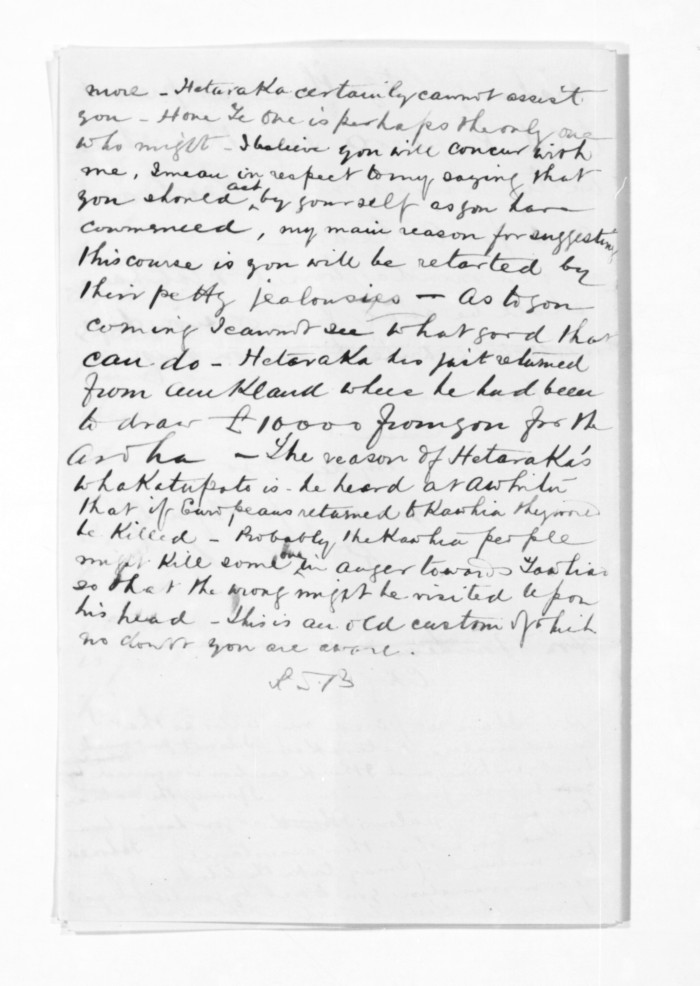 more - Hetaraka certainly cannot assist
you - Hone Te One is perhaps the only one
who might - I believe you will concur with
me, I mean in respect to my saying that
you should act by yourself as you have
commenced, my main reason for suggesting
this course is you will be retarted by
their petty jealousies - As to you
coming I cannot see what good that
can do - Hetaraka has just returned
from Auckland where he had been
to draw £10,000 from you for the
Aroha - The reason of Hetaraka's
whakatupato is - he heard at Awhitu
that if Europeans returned to Kawhia they would
be Killed - Probably the Kawhia people
might Kill some one in anger towards Tawhiao
so that the wrong might be visited upon
his head - This is an old custom of which
no doubt you are aware.